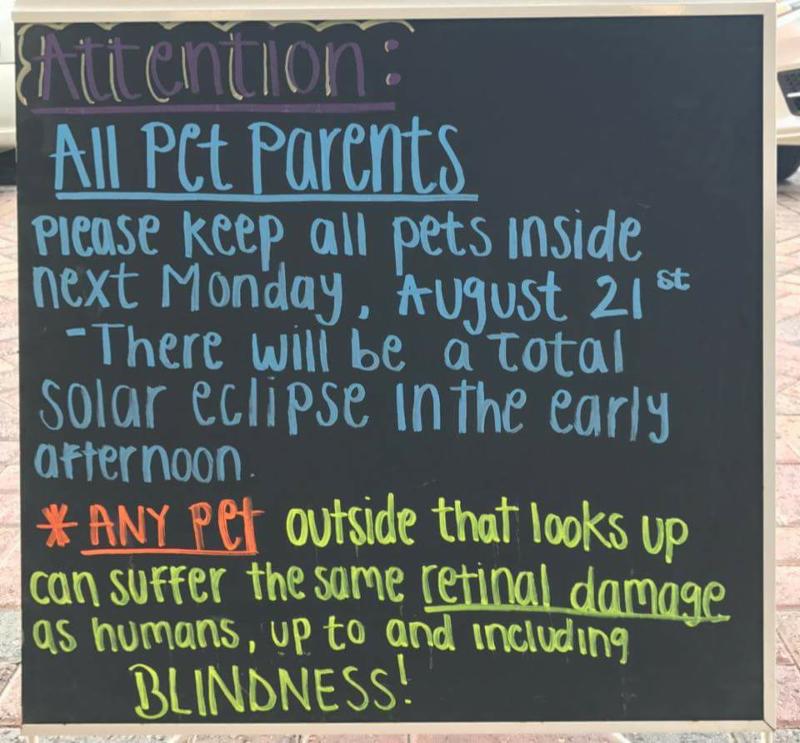 Attention:
All Pet Parents
Please keep all pets inside
next Monday, August 21st
-There will be a total
solar eclipse in the early
afternoon.
*ANY Pet outside that looks up
can suffer the same retinal damage
as humans, up to and including
BLINDNESS!